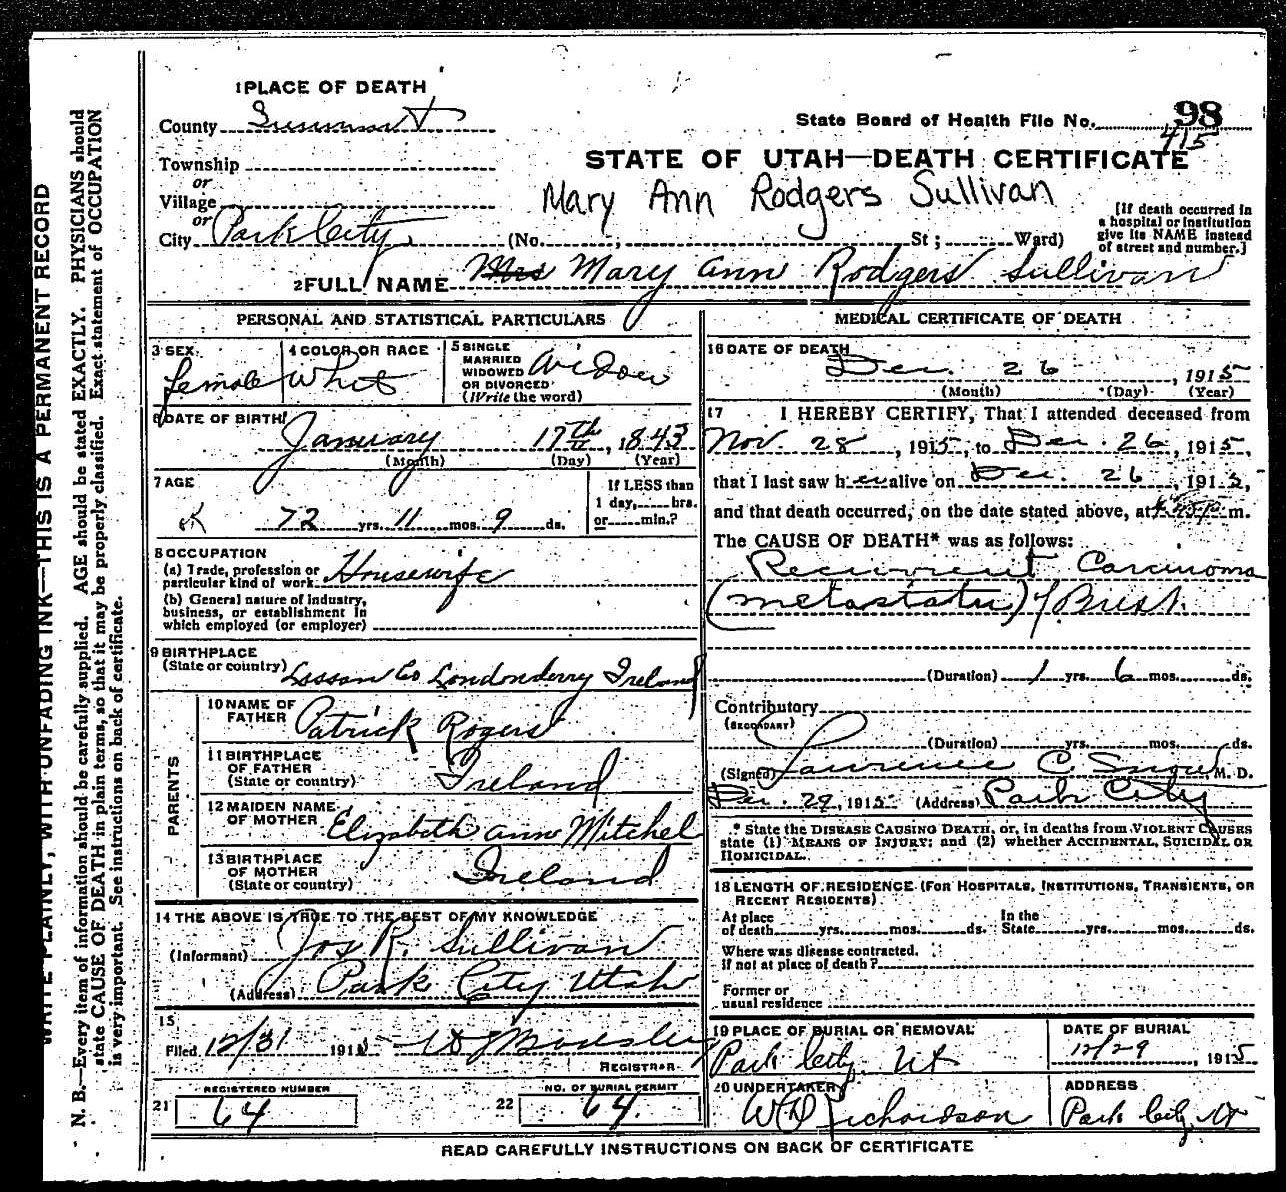 1 PLACE OF DEATH
County Summit
State Board of Health File No. 98
415
Township
or
Village
or
City Park City.
STATE OF UTAH—DEATH CERTIFICATE
Mary Ann Rodgers Sullivan
(No. ; St ; Ward)
[If death occurred in
a hospital or institution
give its NAME instead
of street and number.]
2 FULL NAME Mrs Mary Ann Rodgers Sullivan
PERSONAL AND STATISTICAL PARTICULARS
3 SEX
female
4 COLOR OR RACE
White
5 SINGLE
MARRIED
WIDOWED
OR DIVORCED
(Write the word)
Widow
6 DATE OF BIRTH
January 17th, 1843
(Month) (Day) (Year)
7 AGE
72 yrs. 11 mos. 9 ds.
If LESS than
1 day, hrs.
or min.?
8 OCCUPATION
(a) Trade, profession or
particular kind of work Housewife
(b) General nature of industry,
business, or establishment in
which employed (or employer)
9 BIRTHPLACE
(State or country) Co Londonderry Ireland
PARENTS
10 NAME OF
FATHER Patrick Rogers
11 BIRTHPLACE
OF FATHER
(State or country) Ireland
12 MAIDEN NAME
OF MOTHER Elizabeth Ann Mitchel
13 BIRTHPLACE
OF MOTHER
(State or country) Ireland
14 THE ABOVE IS TRUE TO THE BEST OF MY KNOWLEDGE
(Informant) Jos R. Sullivan
(Address) Park City Utah
15
Filed 12/31 191
REGISTRAR
REGISTERED NUMBER
21 64
NO. OF BURIAL PERMIT
22 64.
MEDICAL CERTIFICATE OF DEATH
16 DATE OF DEATH
Dec. 26, 1915
(Month) (Day) (Year)
17 I HEREBY CERTIFY, That I attended deceased from
Nov. 28, 1915, to Dec. 26, 1915,
that I last saw her alive on Dec. 26, 1915,
and that death occurred, on the date stated above, at m.
The CAUSE OF DEATH* was as follows:
Recurrent Carcinoma
(metastatic) of Breast.
(Duration) 1 yrs. 6 mos. ds.
Contributory
(SECONDARY)
(Duration) yrs. mos. ds.
(Signed) Lawrence C. Snow M. D.
Dec. 29, 1915 (Address) Park City
* State the DISEASE CAUSING DEATH, or, in deaths from VIOLENT CAUSES
state (1) MEANS OF INJURY; and (2) whether ACCIDENTAL, SUICIDAL OR
HOMICIDAL.
18 LENGTH OF RESIDENCE (FOR HOSPITALS, INSTITUTIONS, TRANSIENTS, OR
RECENT RESIDENTS)
At place
of death yrs. mos. ds.
In the
State yrs. mos. ds.
Where was disease contracted.
if not at place of death?
Former or
usual residence
19 PLACE OF BURIAL OR REMOVAL
Park City, Ut
DATE OF BURIAL
12/29, 1915
20 UNDERTAKER
W D Richardson
ADDRESS
Park City Ut
READ CAREFULLY INSTRUCTIONS ON BACK OF CERTIFICATE
WRITE PLAINLY, WITH UNFADING INK—THIS IS A PERMANENT RECORD
N. B.—Every item of information should be carefully supplied. AGE should be stated EXACTLY. PHYSICIANS should
state CAUSE OF DEATH in plain terms, so that it may be properly classified. Exact statement of OCCUPATION
is very important. See instructions on back of certificate.